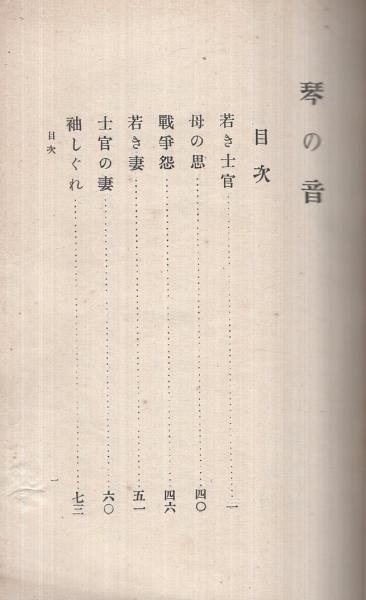 琴の音
目次
若き士官……一
母の思……四〇
戰爭怨……四六
若き妻……五一
士官の妻……六〇
袖しぐれ……七三
目次
一